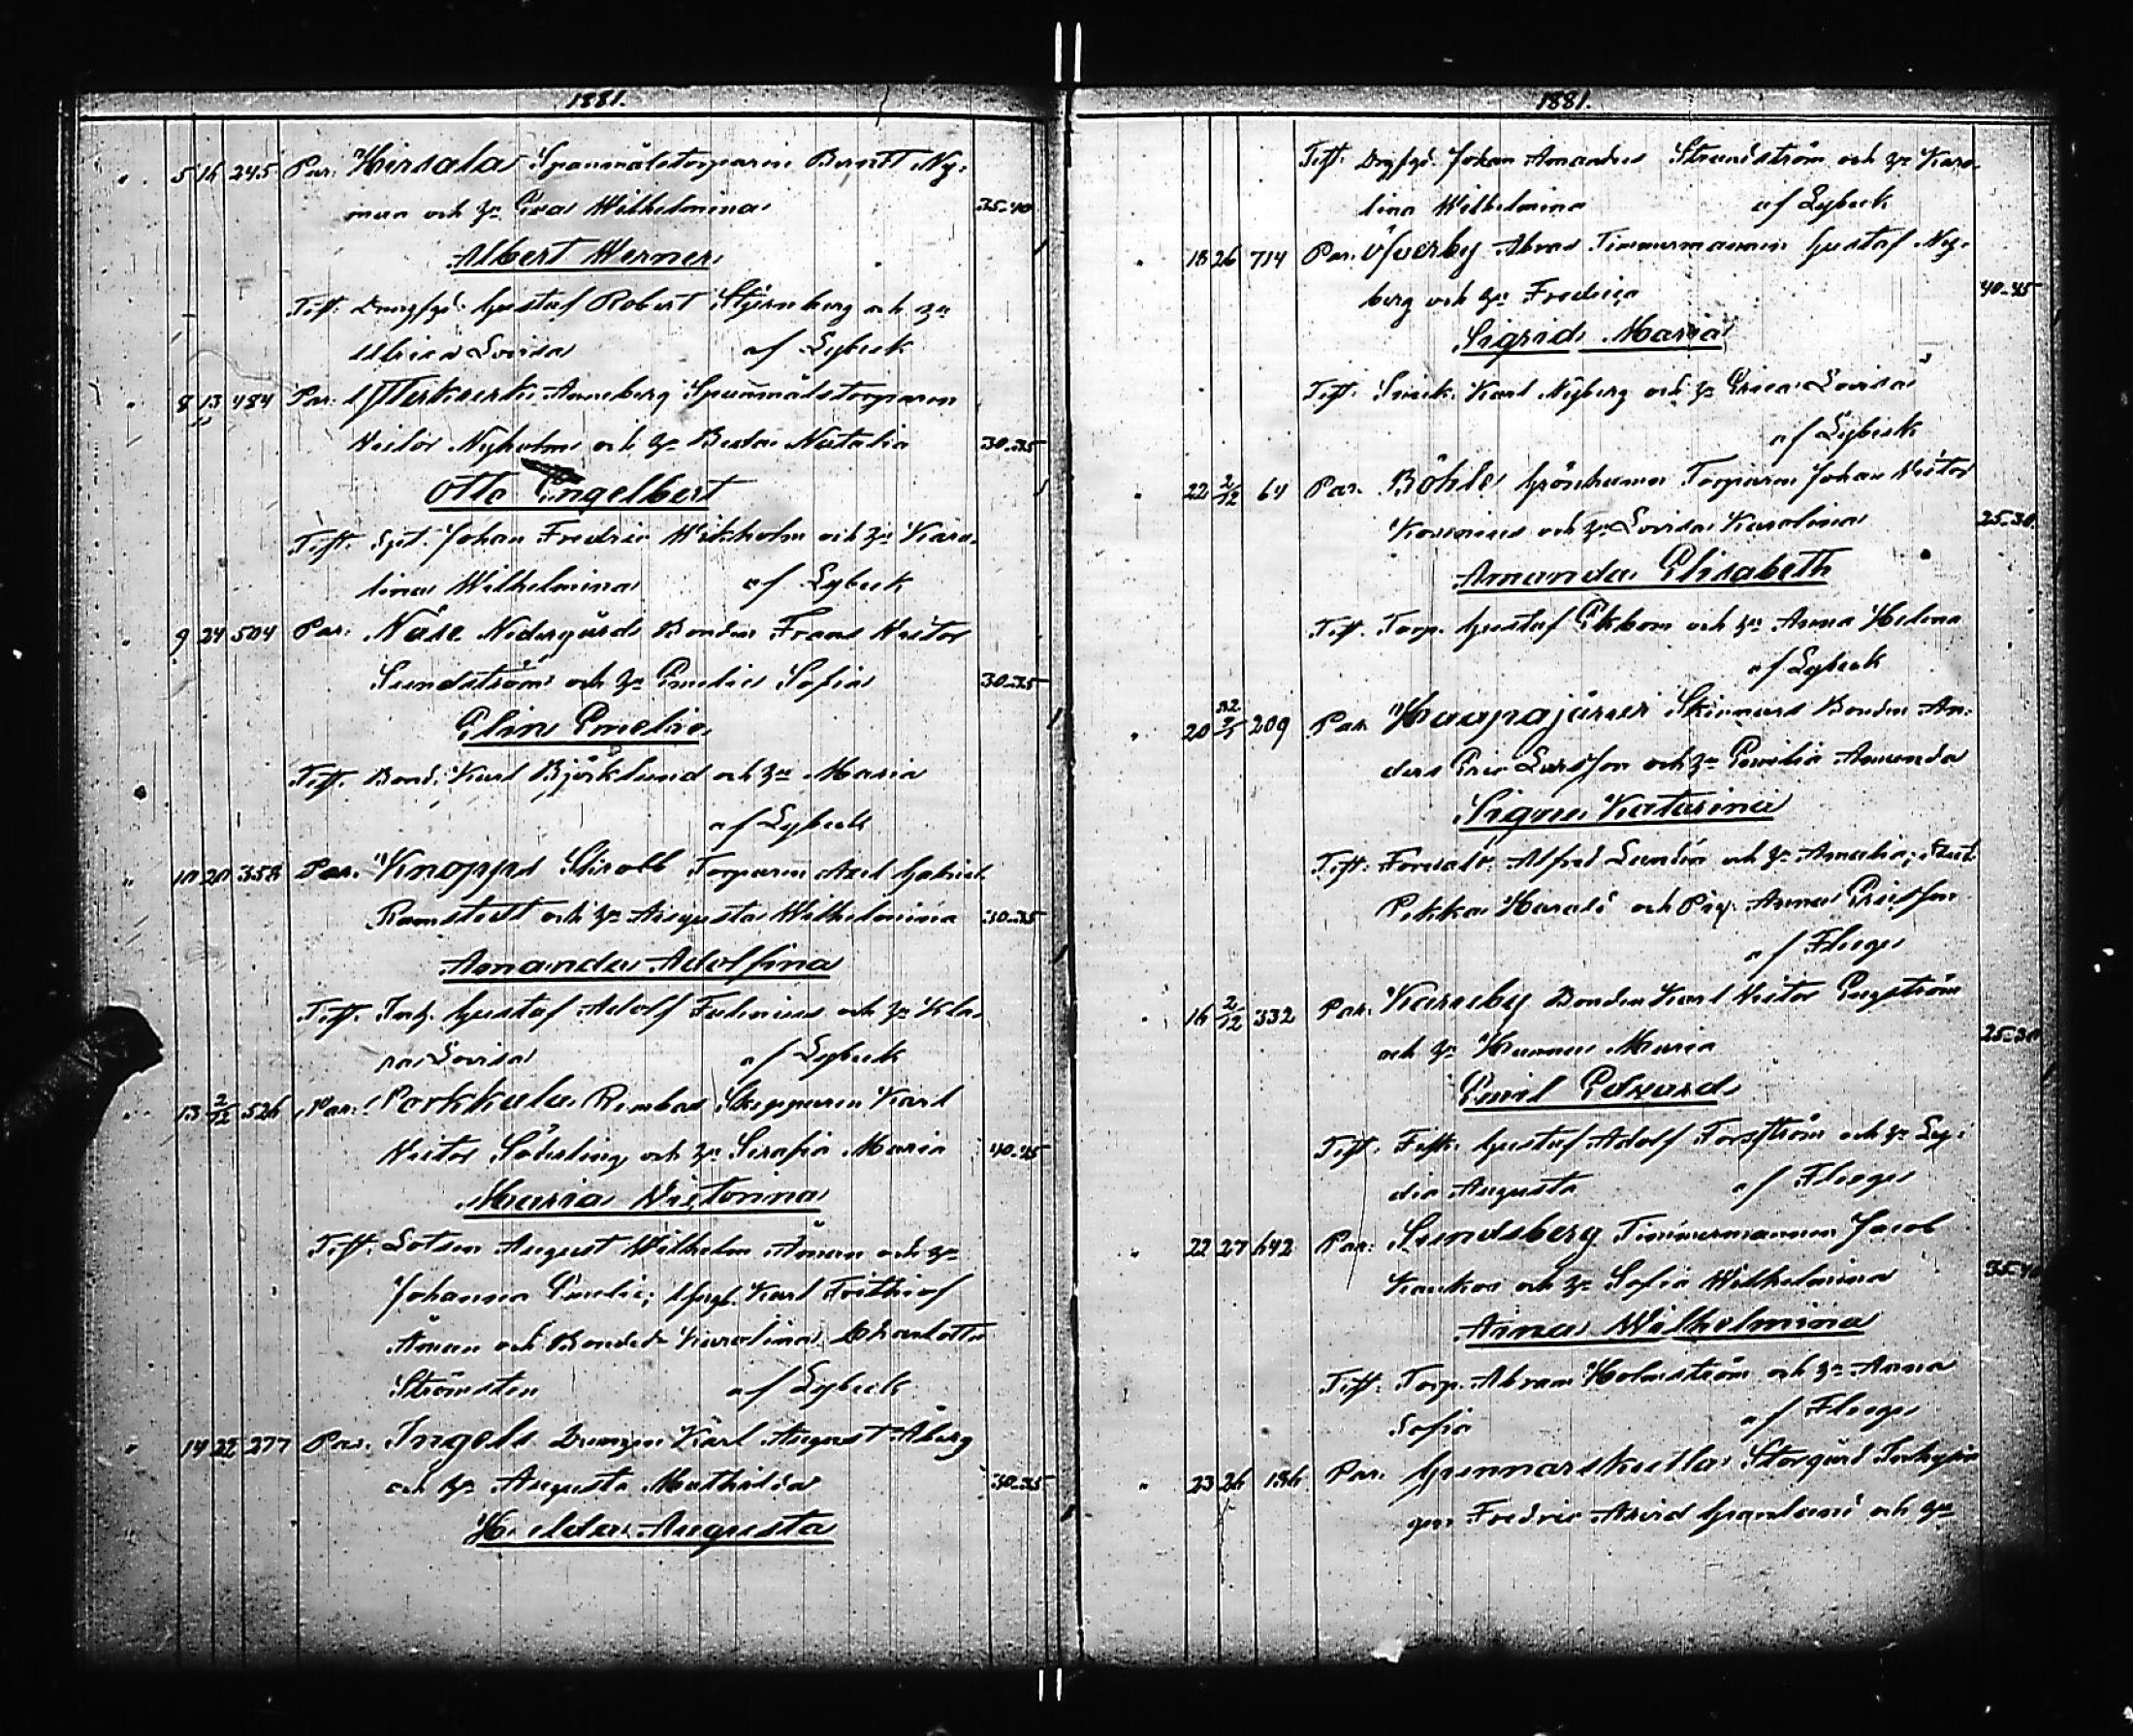 1881.
" 5 16 245 Par. Hirsala Spannmålstorparen Berndt Ny-
man och h:u Eva Wilhelmina 35-40
Albert Werner
Test. Drng Gustaf Robert Stjernberg och h:u
Ulrica Lovisa af Lybeck
" 8 13 484 Par. Ytterkurk Anneberg Spannmålstorparen
Victor Nyholm och h:u Berta Natalia 30-35
Otto Engelbert
Test. Johan Fredric Wikholm och h:u Karo-
lina Wilhelmina af Lybeck
" 9 24 504 Par. Näse Nedergård Bonden Frans Victor
Sundström och h:u Emelie Sofia 30-35
Elin Emelie
Test. Bond. Karl Björklund och h:u Maria
af Lybeck
" 10 20 358 Par. Knopps Torparen Axel Gabriel
Ramstedt och h:u Augusta Wilhelmina 30-35
Amanda Adolfina
Test. Inh. Gustaf Adolf och h:u Kla-
ra Lovisa af Lybeck
" 13 2/12 526 Par. Porkkala Rembas Skepparen Karl
Victor Söderling och h:u Serafia Maria 40-45
Maria Victorina
Test. Lotsen August Wilhelm Åman och h:u
Johanna Emelie; Karl Frithiof
Åman och Bonded. Karolina Charlotta
Strömsten af Lybeck
" 14 22 277 Par. Ingels Drengen Karl August Åberg
och h:u Augusta Mathilda 30-35
Hilda Augusta
1881.
Test. Johan Amandus Strandström och h:u Karo-
lina Wilhelmina af Lybeck
" 18 26 714 Par. Öfverby Abras Timmermannen Gustaf Ny-
berg och h:u Fredrica 40-45
Sigrid Maria
Test. Snick. Karl Nyberg och h:u Erica Lovisa
af Lybeck
" 22 2/12 64 Par. Böhle Grönhamn Torparen Johan Victor
och h:u Lovisa Karolina 25-30
Amanda Elisabeth
Test. Torp. Gustaf Ekbom och h:u Anna Helena
af Lybeck
" 20 209 Par. Haapajärvi Skinnars Bonden An-
ders Eric Larsson och h:u Emilia Amanda
Signe Katarina
Test. Alfred Lundén och h:u Amalia; Stud.
Pekka Harald och Pig. Anna Ericsson
af Fleege
" 16 2/12 332 Par. Karuby Bonden Karl Victor Engström
och h:u Hanna Maria 25-30
Emil Edvard
Test. Fisk. Gustaf Adolf Forsström och h:u Ly-
dia Augusta af Fleege
" 22 27 642 Par. Sundsberg Timmermannen Jacob
och h:u Sofia Wilhelmina 35-40
Aina Wilhelmina
Test. Torp. Abram Holmström och h:u Anna
Sofia af Fleege
" 23 26 186 Par. Gunnarskulla Storgård Inhysin-
gen Fredric Arvid Granlund och h:u